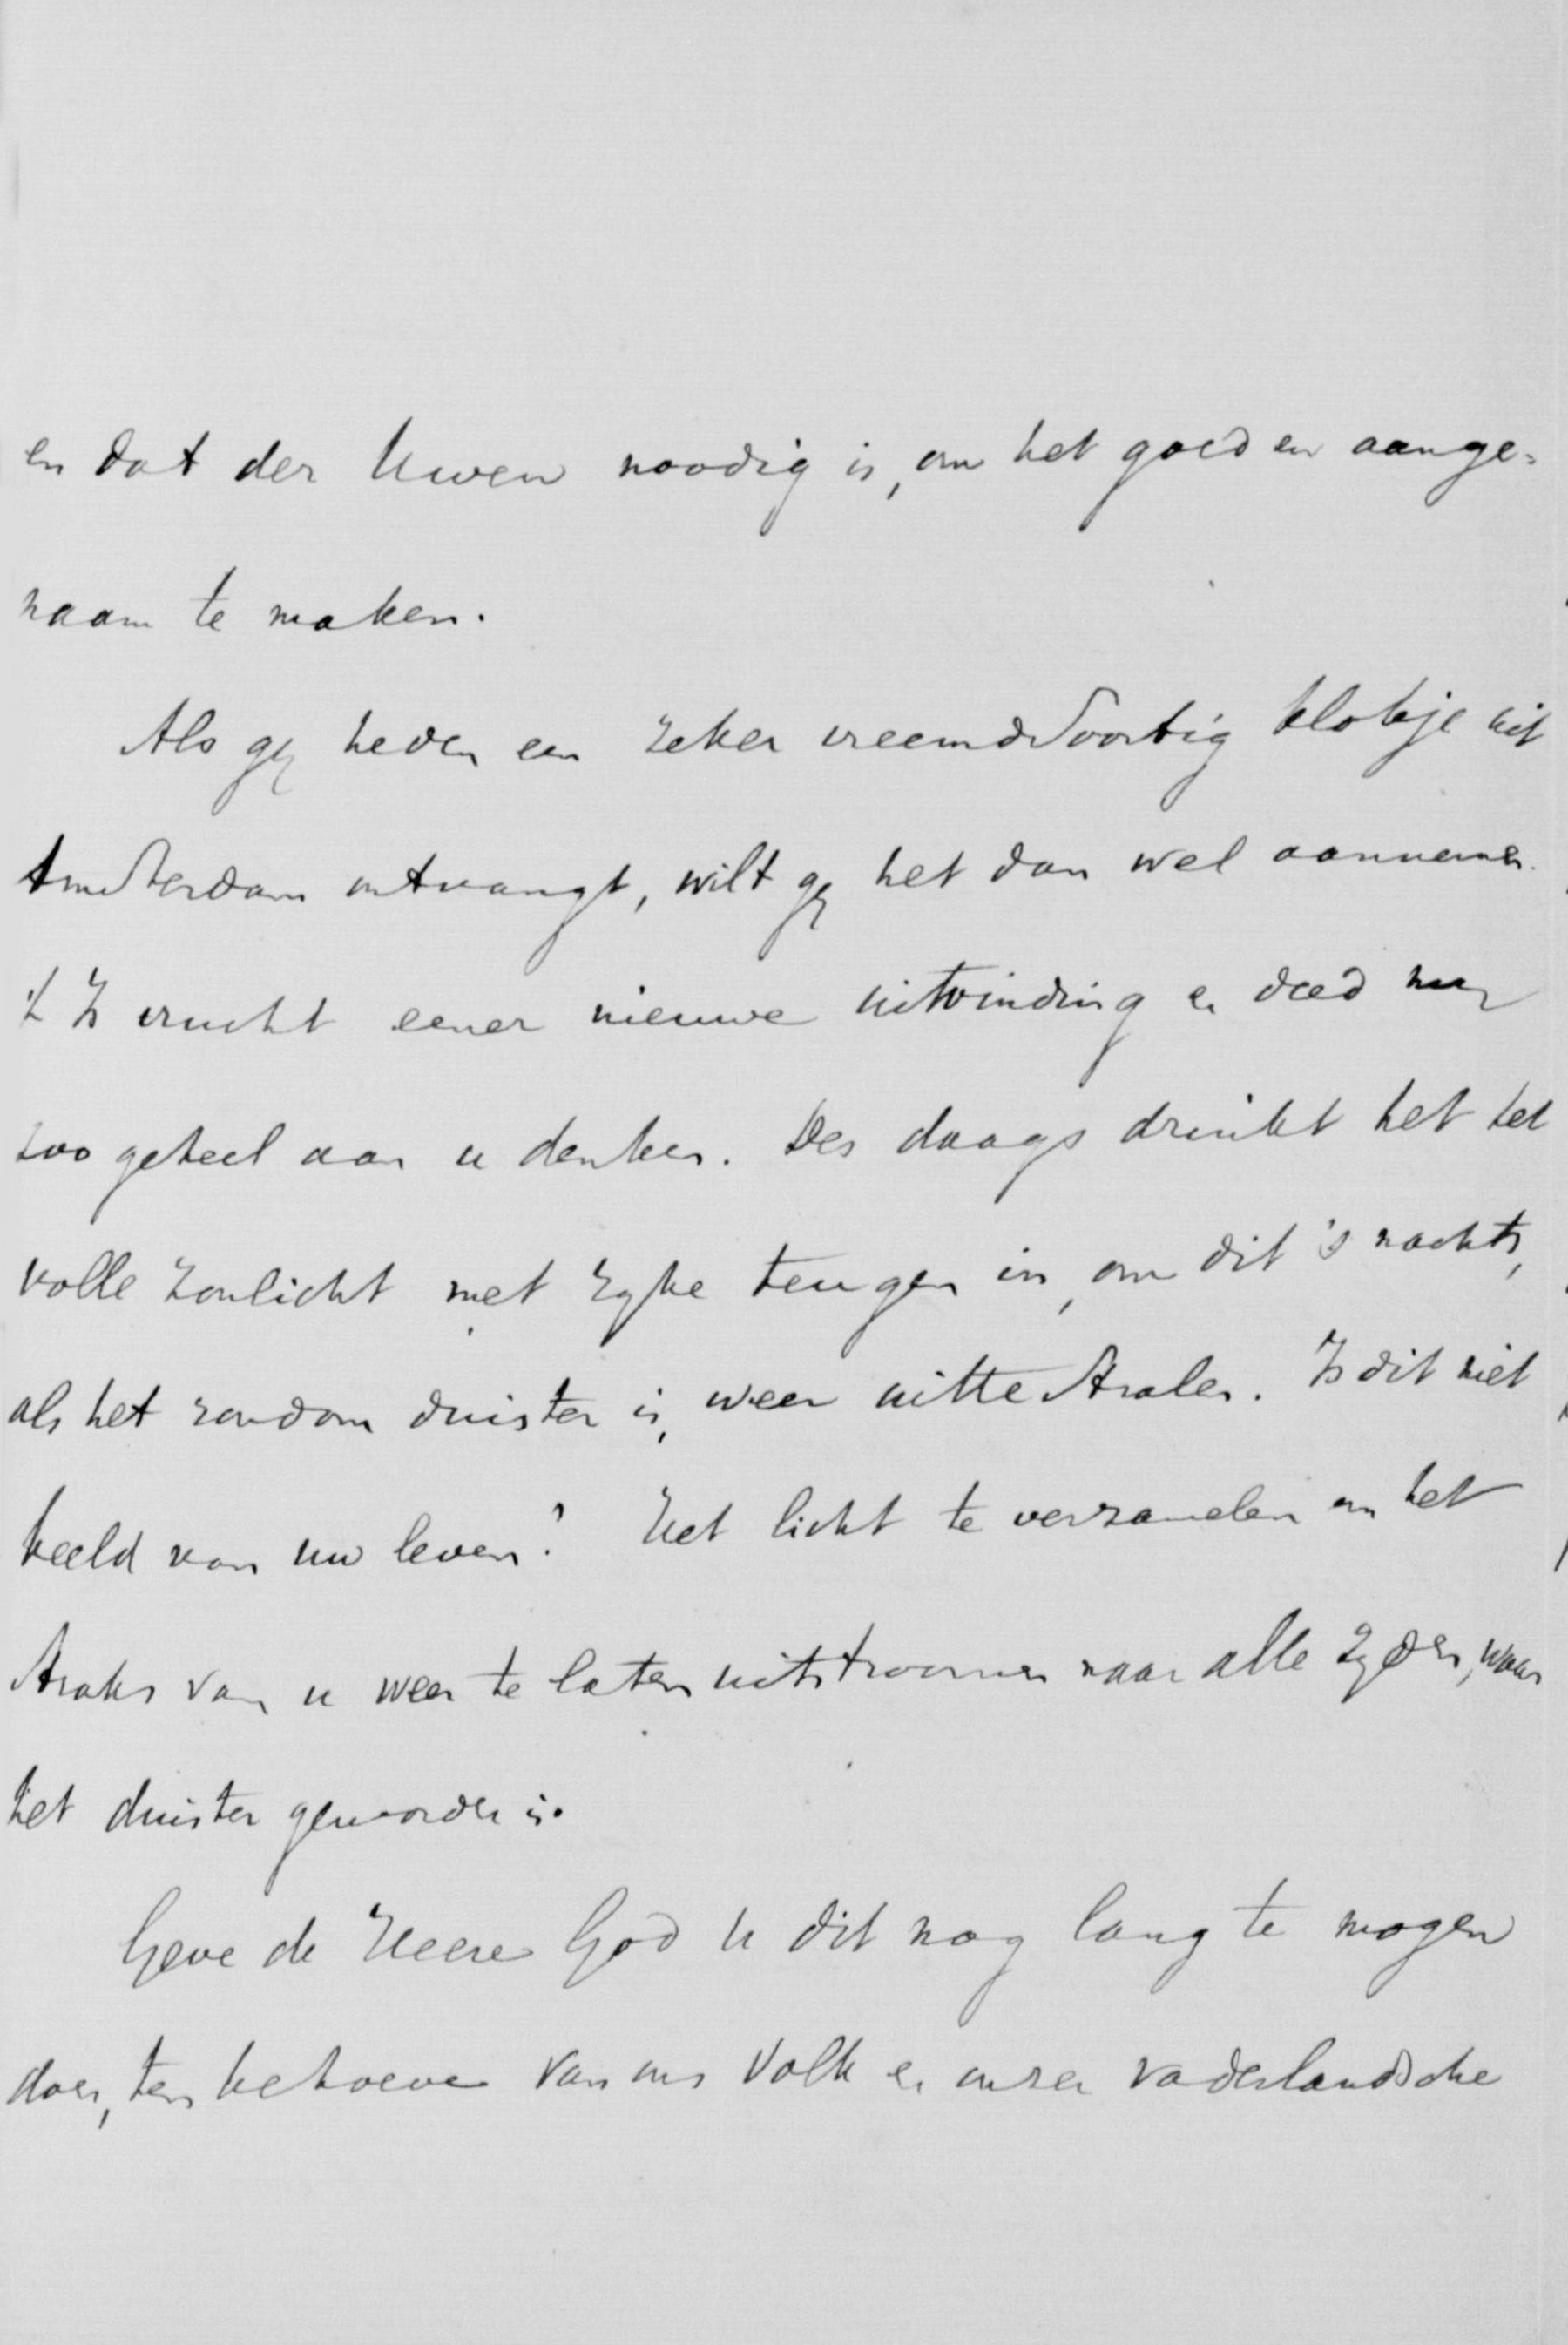 en dat der Uwen noodig is, om het goed en aange=
naam te maken.
Als gij heden een zeker vreemdsoortig klokje uit
Amsterdam ontvangt, wilt gij het dan wel aannemen.
't Is vrucht eener nieuwe uitvinding en deed mij
zoo geheel aan u denken. Des daags drinkt het het
volle zonlicht met rijke teugen in, om dit 's nachts,
als het rondom duister is, weer uitte stralen. Is dit niet
beeld van uw leven? Het licht te verzamelen om het
straks van u weer te laten uitstroomen naar alle zijden, waar
het duister geworden is.
Geve de Heere God U dit nog lang te mogen
doen, ten behoeve van ons Volk en onzer vaderlandsche